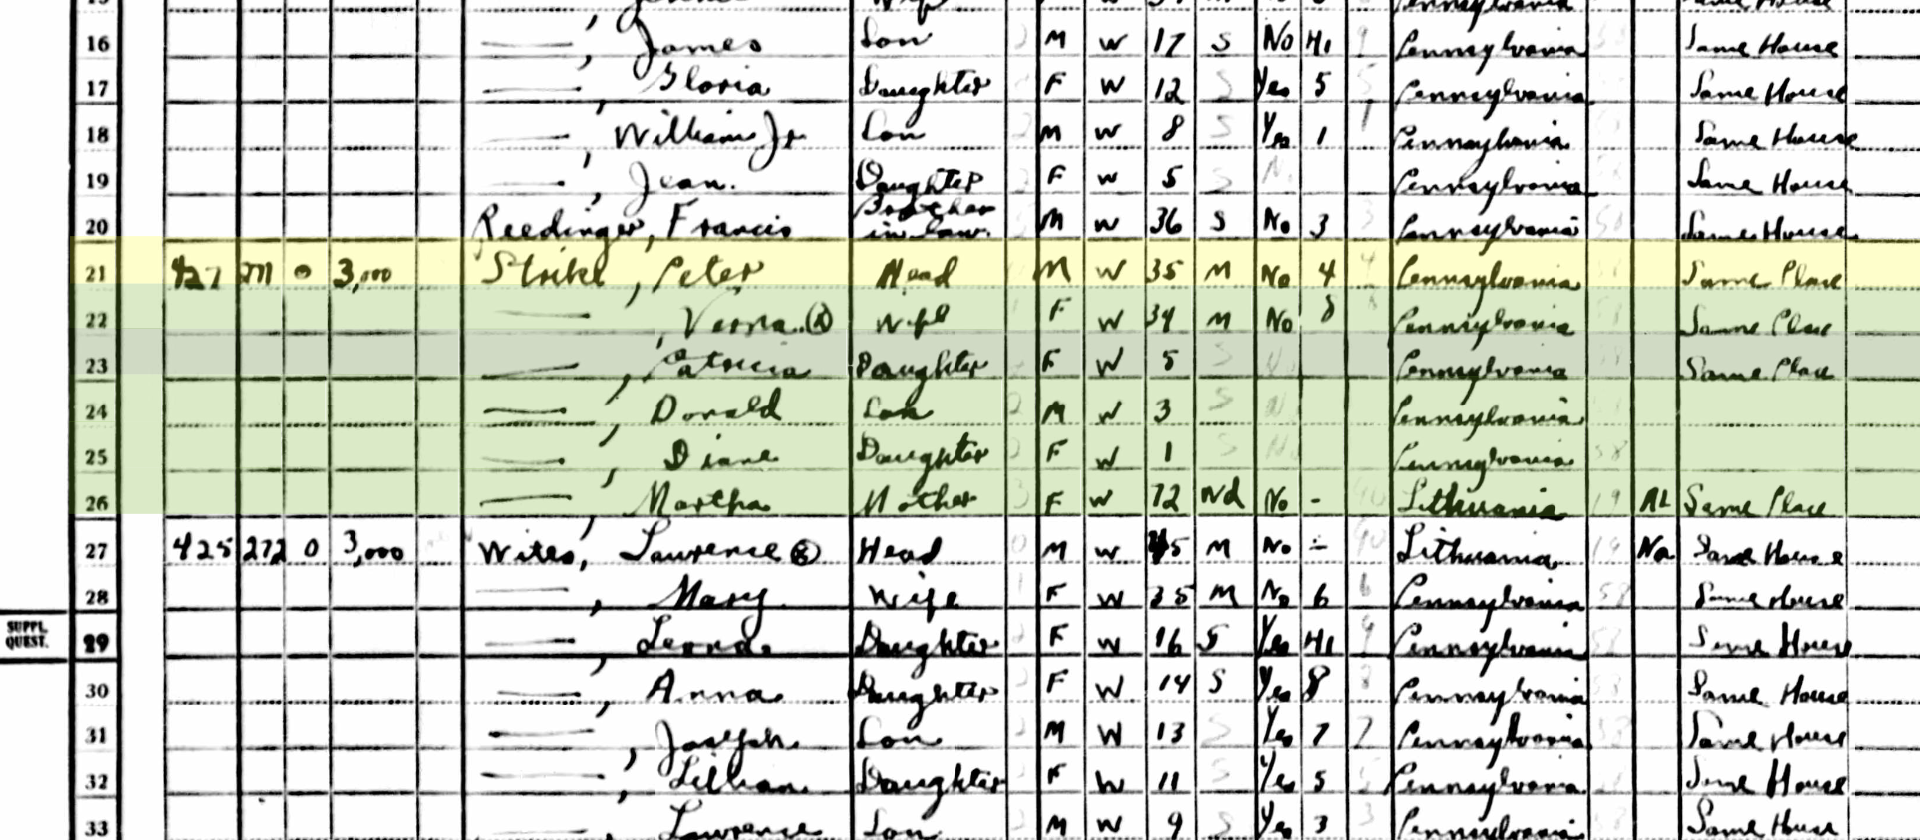 Pennsylvania Same House
16 James Son M W 17 S No H1 Pennsylvania Same House
17 Gloria Daughter F W 12 S Yes 5 Pennsylvania Same House
18 William Jr Son M W 8 S Yes 1 Pennsylvania Same House
19 Jean. Daughter F W 5 S Pennsylvania Same House
20 Reedinger, Francis Brother in law. M W 36 S No 3 Pennsylvania Same House
21 427 271 0 3,000 Strike, Peter Head M W 35 M No 4 Pennsylvania Same Place
22 Verna Wife F W 34 M No 8 Pennsylvania Same Place
23 Patricia Daughter F W 5 S Pennsylvania Same Place
24 Donald Son M W 3 S Pennsylvania
25 Diane Daughter F W 1 S Pennsylvania
26 Martha Mother F W 72 Wd No - Lithuania AL Same Place
27 425 272 0 3,000 Wites, Lawrence Head M W 45 M No - Lithuania Na Same House
28 Mary Wife F W 35 M No 6 Pennsylvania Same House
SUPPL. QUEST.
29 Leona Daughter F W 16 S Yes H1 Pennsylvania Same House
30 Anna Daughter F W 14 S Yes 8 Pennsylvania Same House
31 Joseph Son M W 13 S Yes 7 Pennsylvania Same House
32 Lillian Daughter F W 11 S Yes 5 Pennsylvania Same House
33 Lawrence Son M W 9 S Yes 3 Pennsylvania Same House